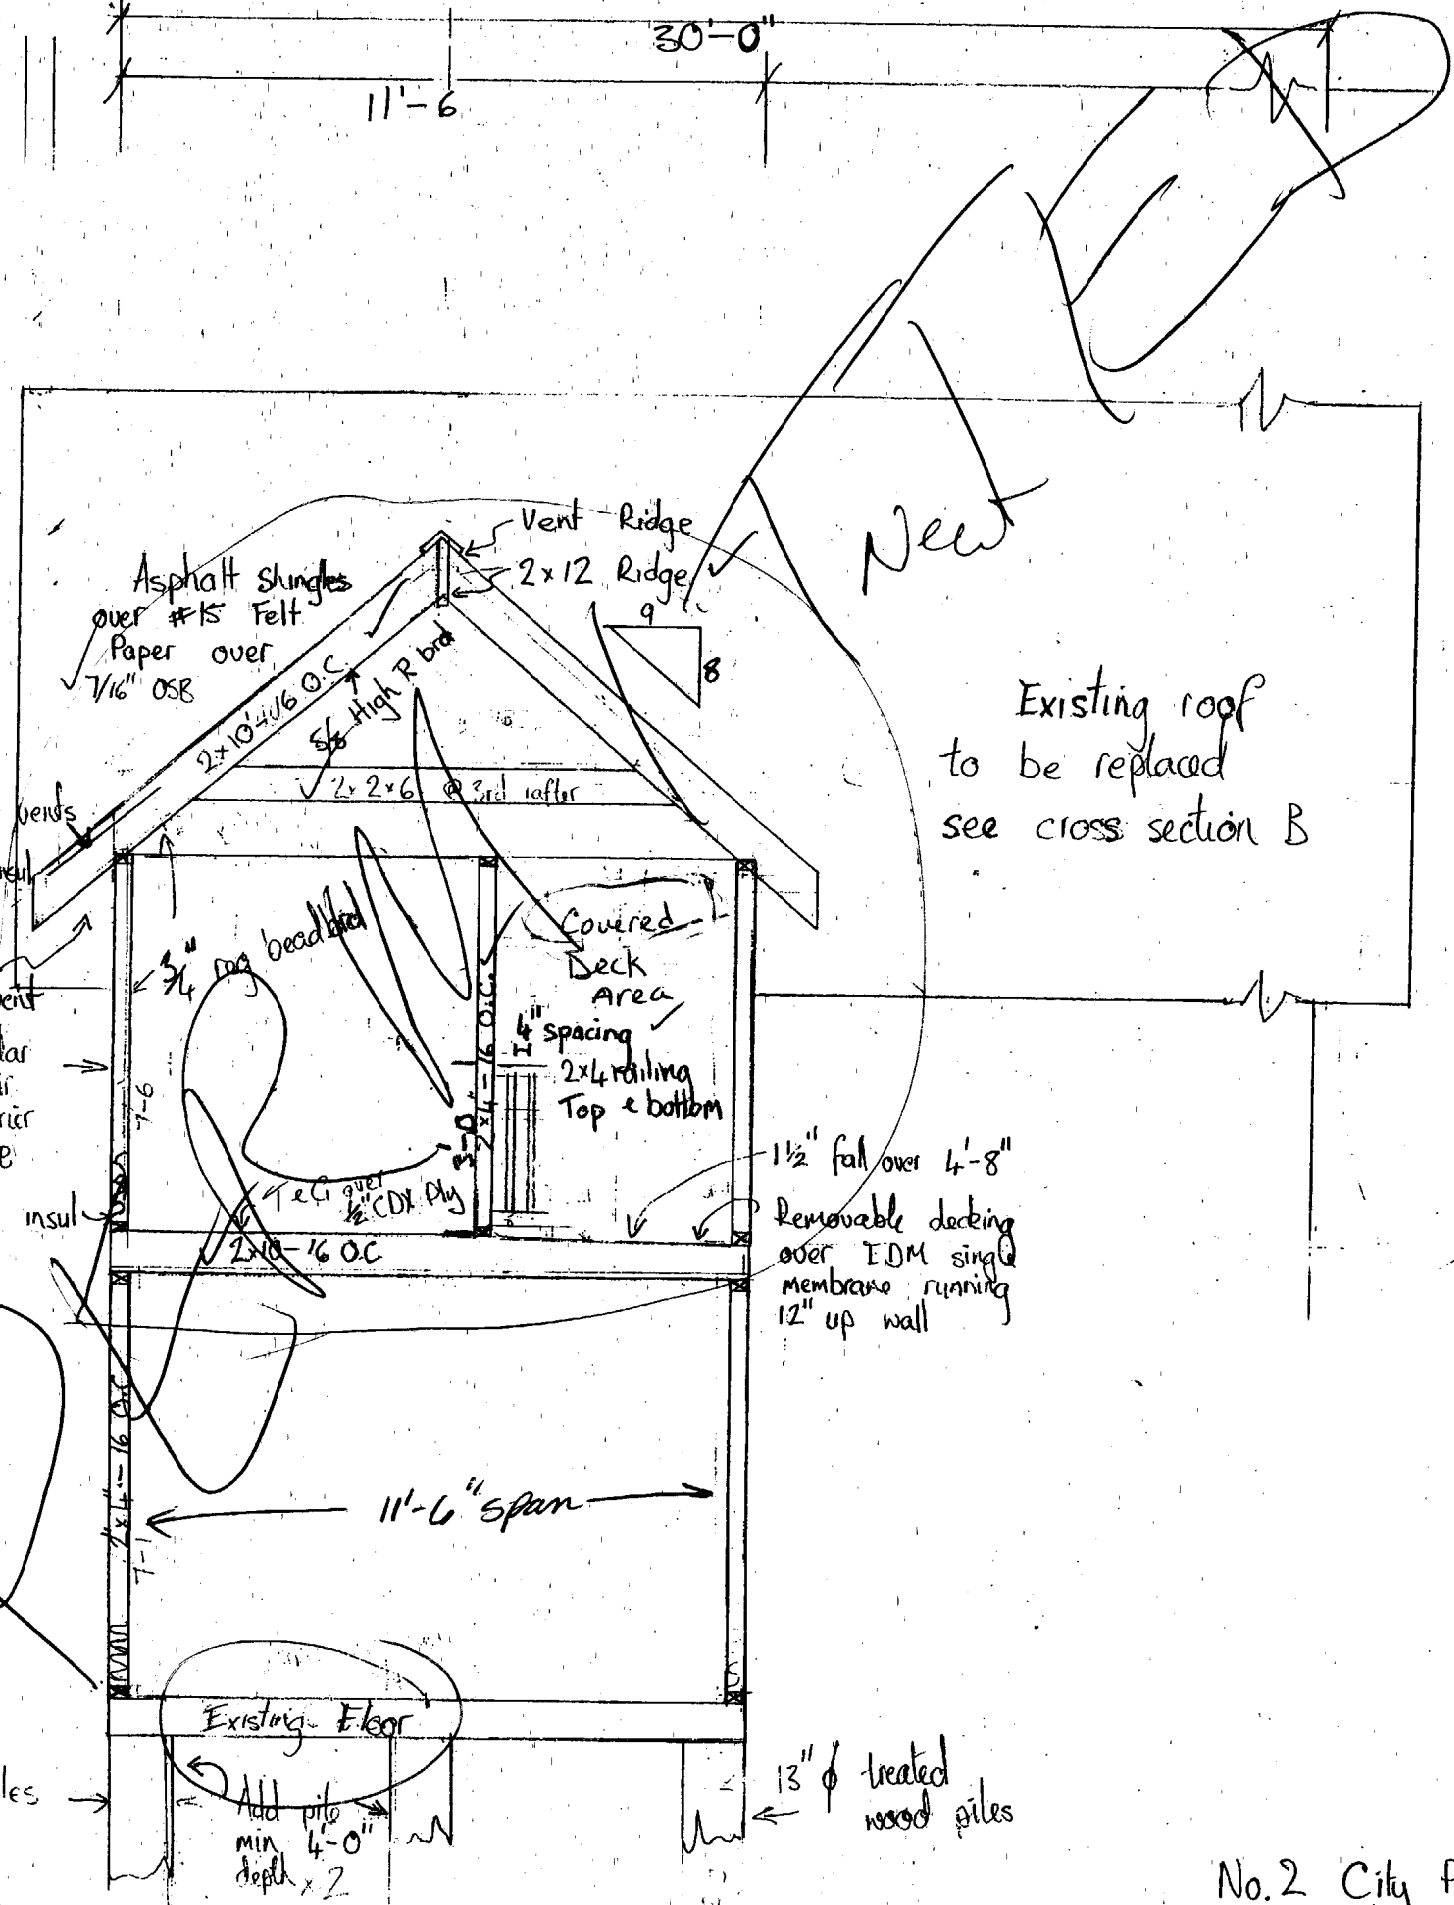 30'-0"
11'-6
New
Vent Ridge
2x12 Ridge
Asphalt Shingles
over #15 Felt
Paper over
7/16" OSB
9
8
5/8 High R brd
2x 2x6 @ 3rd rafter
Existing roof
to be replaced
see cross section B
vents
Covered
Deck
Area
4" spacing
2x4 railing
Top & bottom
3/4" beadbrd
7-6
2x4-16 O.C.
3-0"
insul
T&G over
1/2" CDX Ply
2x10-16 O.C
1 1/2" fall over 4'-8"
Removable decking
over EDM single
membrane running
12" up wall
2x4-16 O.C
11'-6" span
7-1
Existing Floor
Add pile
min 4'-0"
depth x 2
13" ϕ treated
wood piles
No. 2 City